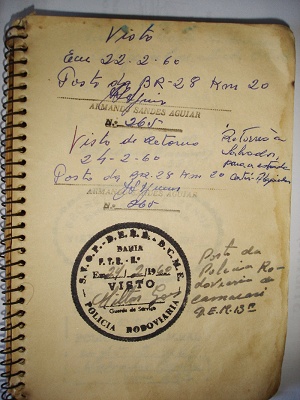 Visto
Em 22-2-60
Posto da BR-28 Km 20
ARMANDO SANDES AGUIAR
Nº 265
Visto de retorno
24-2-60
Posto da BR-28 Km 20
ARMANDO SANDES AGUIAR
Nº 265
Retorno a
Salvador,
para a
S.V.O.P. - D.E.R.B. - D.C.M.E.
BAHIA
P. T. R. - Nº
Em 24/2/1960
VISTO
Milton
Guarda de Serviço
POLICIA RODOVIARIA
Posto da
Policia Ro-
doviaria de
camacari
P.T.R. 13ª